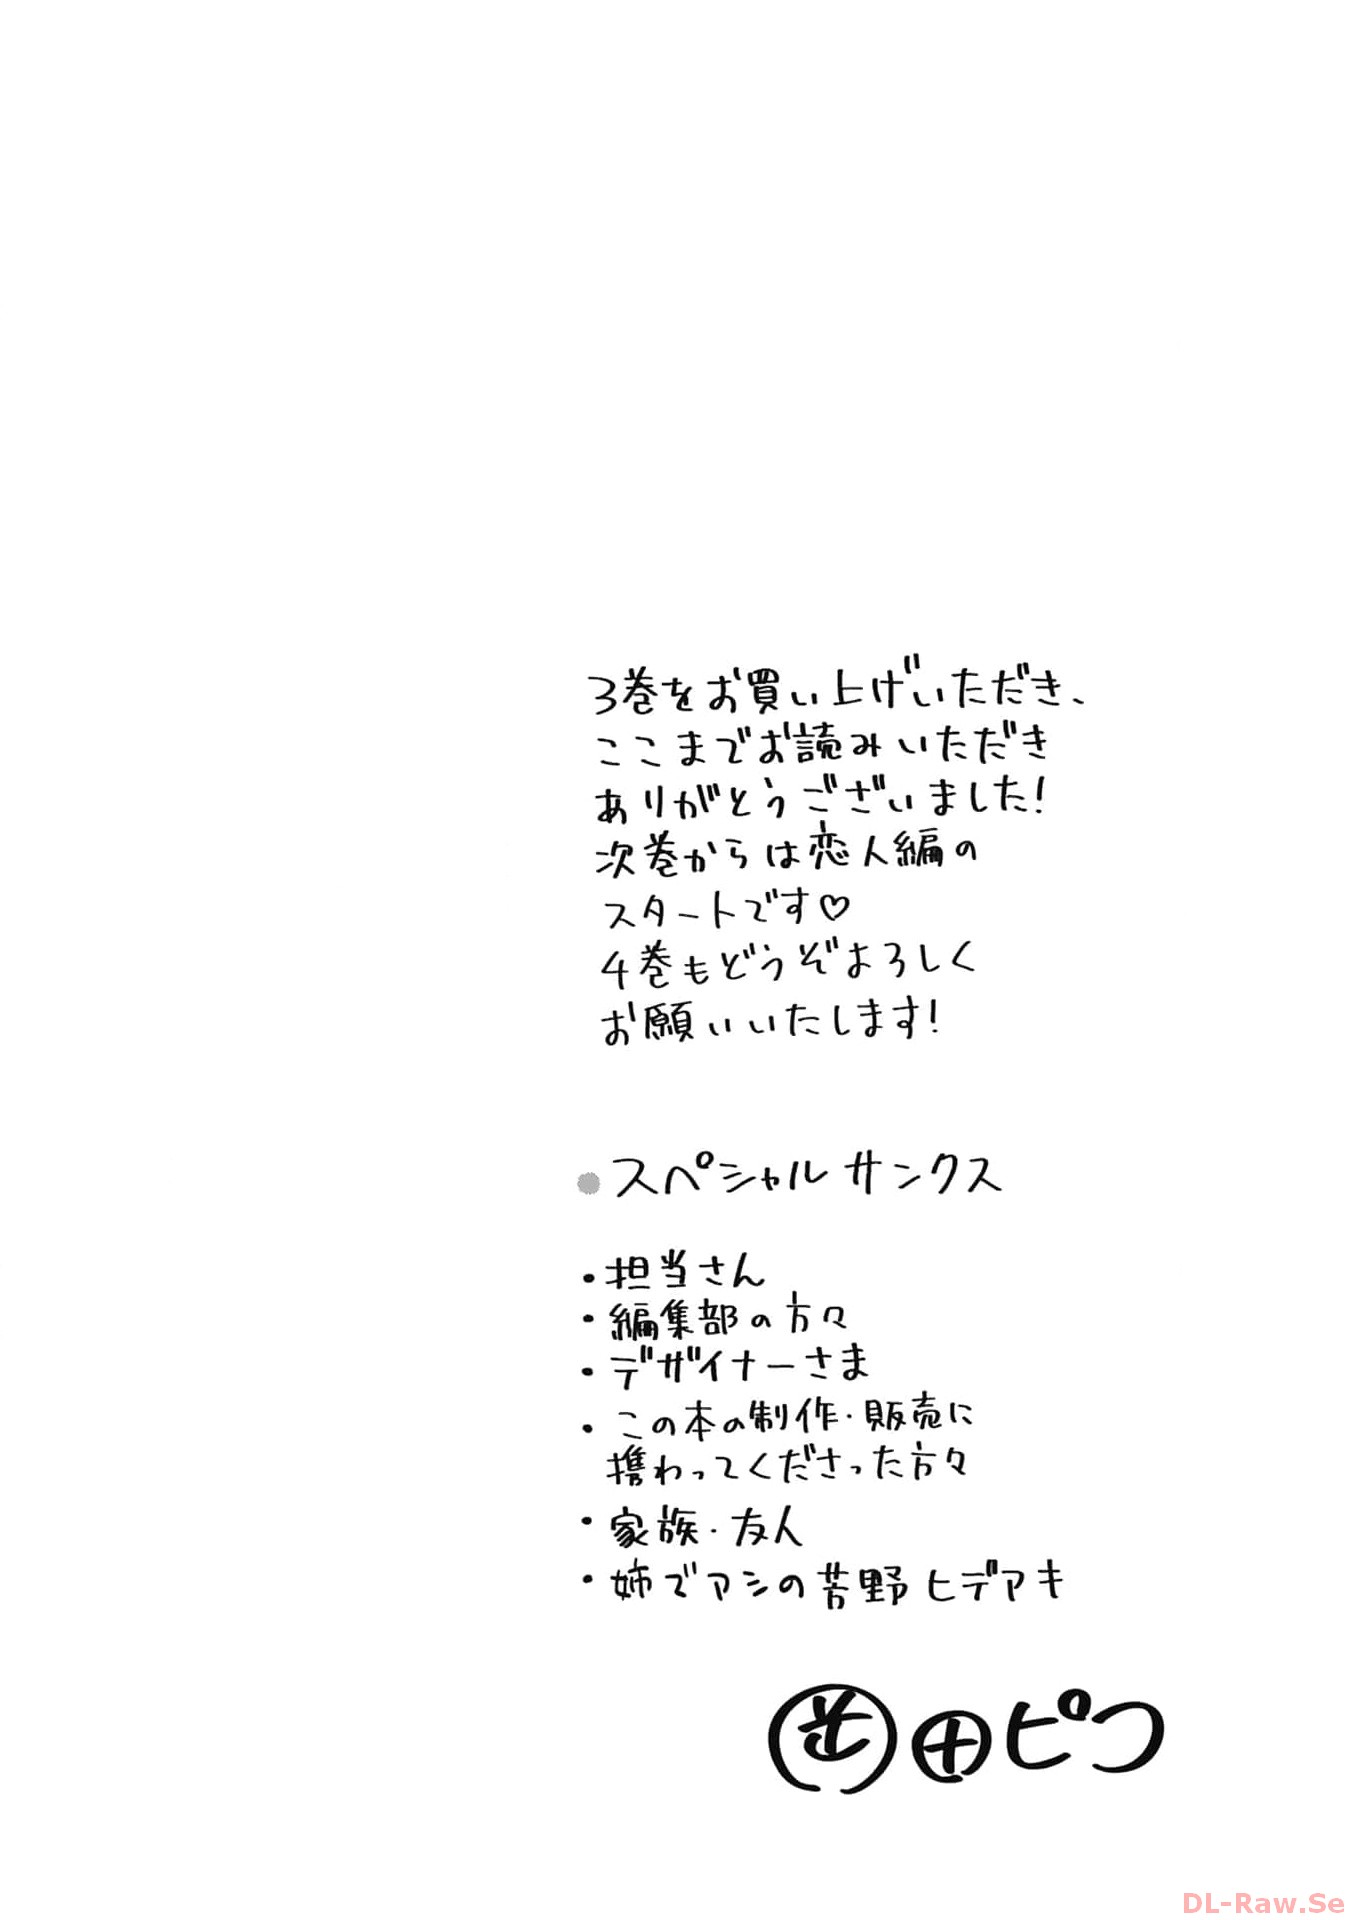 3巻をお買い上げいただき、
ここまでお読みいただき
ありがとうございました!
次巻からは恋人編の
スタートです♡
4巻もどうぞよろしく
お願いいたします!
●スペシャルサンクス
・担当さん
・編集部の方々
・デザイナーさま
・この本の制作・販売に
携わってくださった方々
・家族・友人
・姉でアシの苦野ヒデアキ
田ピつ
DL-Raw.Se